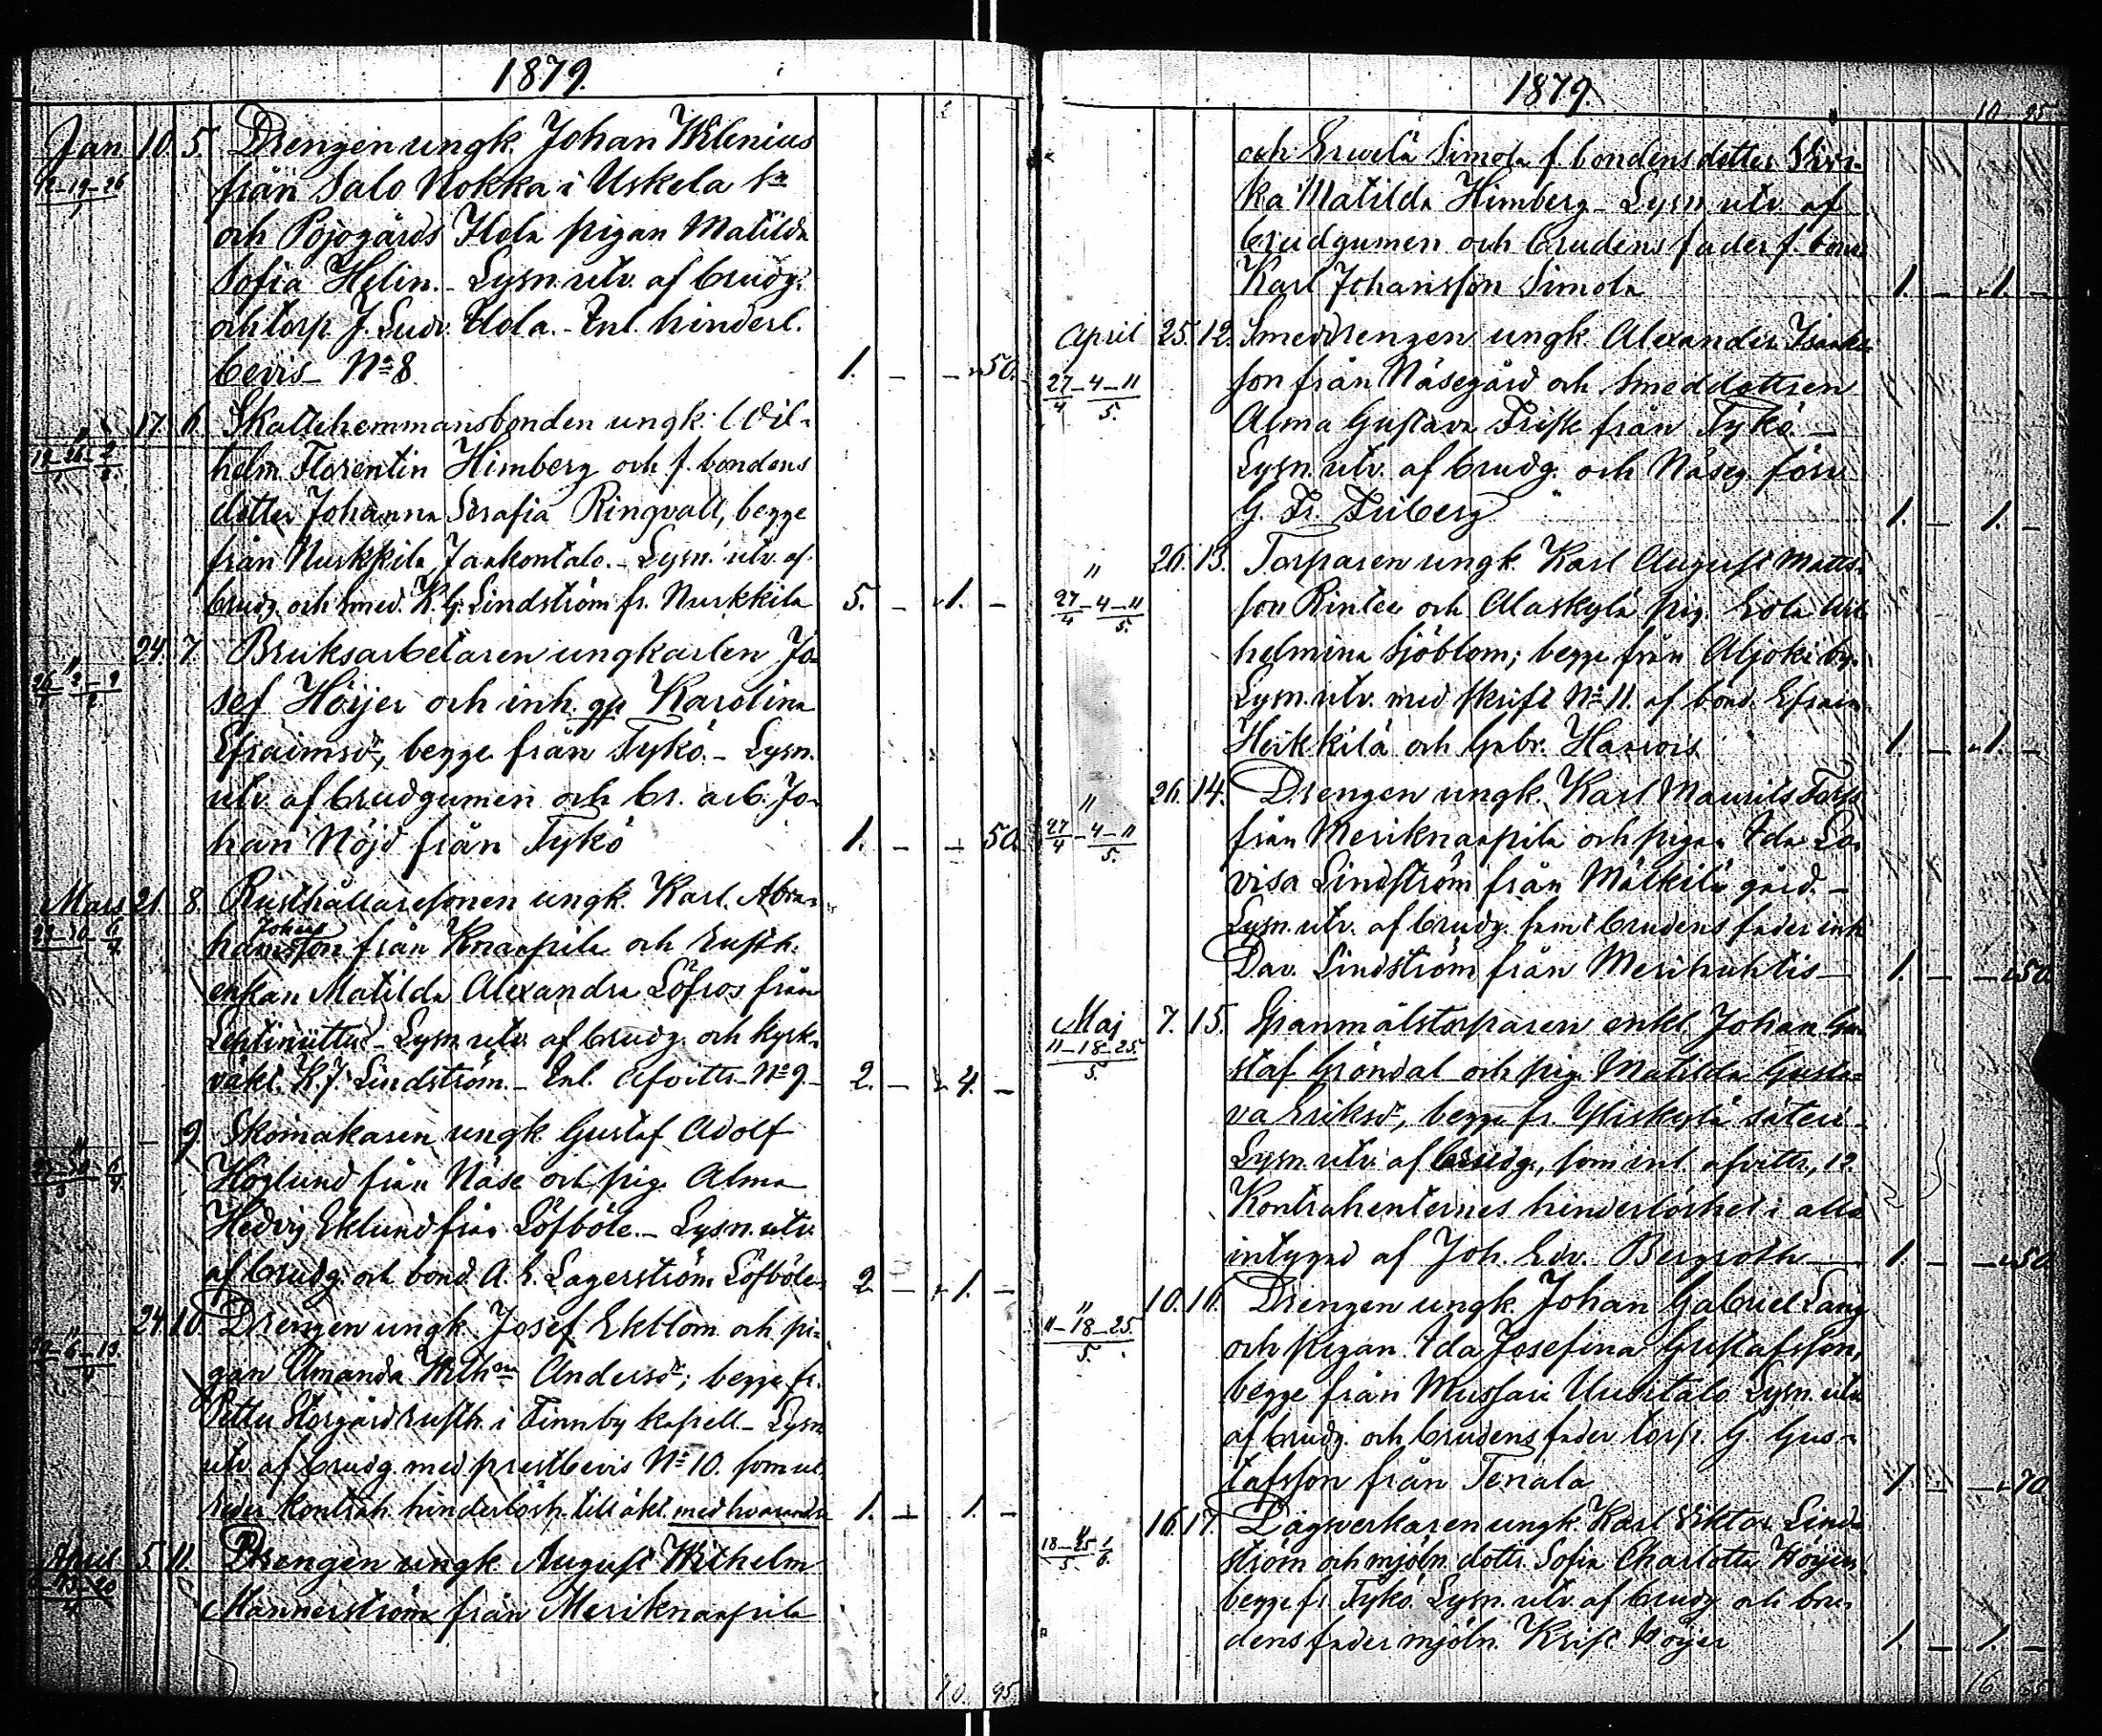 1879.
Jan. 10. 5. Drengen ungk. Johan Wilenius
12-19-26/1 från Salo Nokka i Uskela sn
och Pojogårds Ilola pigan Matilda
Sofia Helin. - Lysn. utv. af brudg.
och torp. J. Ludv. Ilola. - Inl. hinderl.
bevis No 8. 1. - - 50.
" 17. 6. Skattehemmansbonden ungk. Wil-
19-26/1-2/2 helm Florentin Himberg och f. bondens
dotter Johanna Serafia Ringvall, begge
från Nurkkila Jaakontalo. - Lysn. utv. af
brudg. och smed. K. G. Lindström fr. Nurkkila 5. - 1. -
" 24. 7. Bruksarbetaren ungkarlen Jo-
26/1-2-9/2 sef Höijer och inh. Karolina
Efraimsdr, begge från Tykö. - Lysn.
utv. af brudgumen och br. arb. Jo-
han Nöjd från Tykö 1. - - 50.
Mars 21. 8. Rusthållaresonen ungk. Karl Abra-
23-30/3-6/4 hamsson Johans från Knaapila och rusth.
enkan Matilda Alexandra Löfros från
Lehtiniittu - Lysn. utv. af brudg. och kyrk-
väkt. K. J. Lindström. - Inl. afvittr. No 9. 2. - 4. -
" - 9. Skomakaren ungk. Gustaf Adolf
23-30/3-6/4 Höglund från Näse och pig. Alma
Hedvig Eklund från Löfböle. - Lysn. utv.
af brudg. och bond. A. E. Lagerström Löfböle. 2. - 1. -
" 24. 10. Drengen ungk. Josef Ekblom och pi-
30-6-13/4 gan Amanda Wilhna Andersdr; begge fr.
Pettu Storgård rusth. i Finnby kapell. - Lysn.
utv. af brudg. med prestbevis No 10. som ut-
reder kontrah. hinderlösh. till äkt. med hvarandra 1. - 1. -
April 5. 11. Drengen ungk. August Wilhelm
13-20/4 Mannerström från Meriknaapila
10 95
1879.
10 95
och Ervelä Simola f. bondens dotter
ka Matilda Himberg - Lysn. utv. af
brudgumen och brudens fader f. bond.
Karl Johansson Simola 1. - 1. -
April 25. 12. Smeddrengen ungk. Alexander Isaaks-
27/4-4-11/5. son från Näsegård och smeddottren
Alma Gustava Friske från Tykö. -
Lysn. utv. af brudg. och Näseg. förv.
G. Fr. Friberg 1. - 1. -
" 26. 13. Torparen ungk. Karl August Matts-
27/4-4-11/5. son Rintee och Alaskylä pig. Eva Wil-
helmina Sjöblom; begge från Aljoki by.
Lysn. utv. med skrift No 11. af bond. Efraim
Heikkilä och Gabr. Haavois 1. - 1. -
" 26. 14. Drengen ungk. Karl Maurits Forss
27/4-4-11/5. från Meriknaapila och pigan Ida Lo-
visa Lindström från Mälkilä gård. -
Lysn. utv. af brudg. samt brudens fader inh.
Dav. Lindström från Merihuhtis - 1. - - 50.
Maj 7. 15. Spanmålstorparen enkl. Johan Gu-
11-18-25./5. staf Gröndal och pig. Matilda Gusta-
va Eriksdr, begge fr. Yliskylä säteri -
Lysn. utv. af brudg., som inl. afvittr, 12.
Kontrahenternes hinderlöshet i allo
intygad af Joh. Edv. Bergroth - 1. - - 50.
" 10. 16. Drengen ungk. Johan Gabriel Lang
11-18-25./5. och pigan Ida Josefina Gustafsson,
begge från Mussari Uusitalo. Lysn. utv.
af brudg. och brudens fader torp. G. Gus-
tafsson från Tenala 1. - - 70.
" 16. 17. Dagsverkaren ungk. Karl Viktor Lind-
18-25/5-1/6. ström och mjöln. dottr. Sofia Charlotta Höijer,
begge fr. Tykö. Lysn. utv. af brudg. och bru-
dens fader mjöln. Krist. Höijer 1. - 1. -
16 65